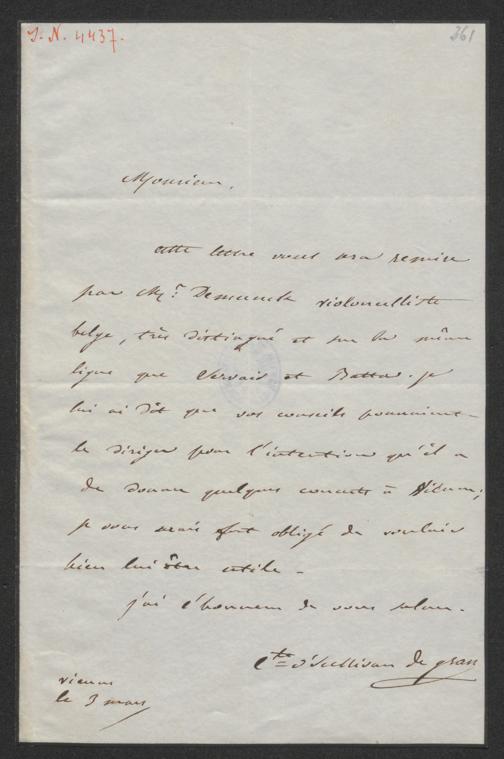 I. N. 4437.
361
Monsieur,
cette lettre vous sera remise
par Mr. Demunck violoncelliste
belge, très distingué et sur la même
ligne que Servais et Batta. je
lui ai dit que vos conseils pourraient
le diriger pour l'intention qu'il a
de donner quelques concerts à Vienne;
je vous serais fort obligé de vouloir
bien lui être utile.
j'ai l'honneur de vous saluer.
Cte O'Sullivan de grass
vienne
le 3 mars